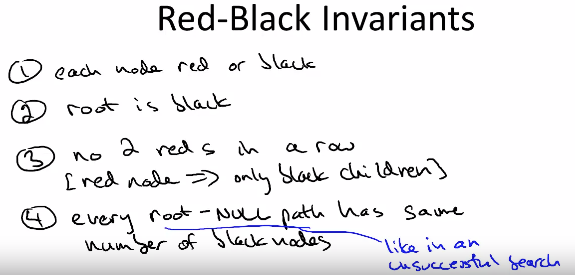 Red-Black Invariants
① each node red or black
② root is black
③ no 2 reds in a row
[red node => only black children]
④ every root-NULL path has same
number of black nodes
like in an
unsuccessful search